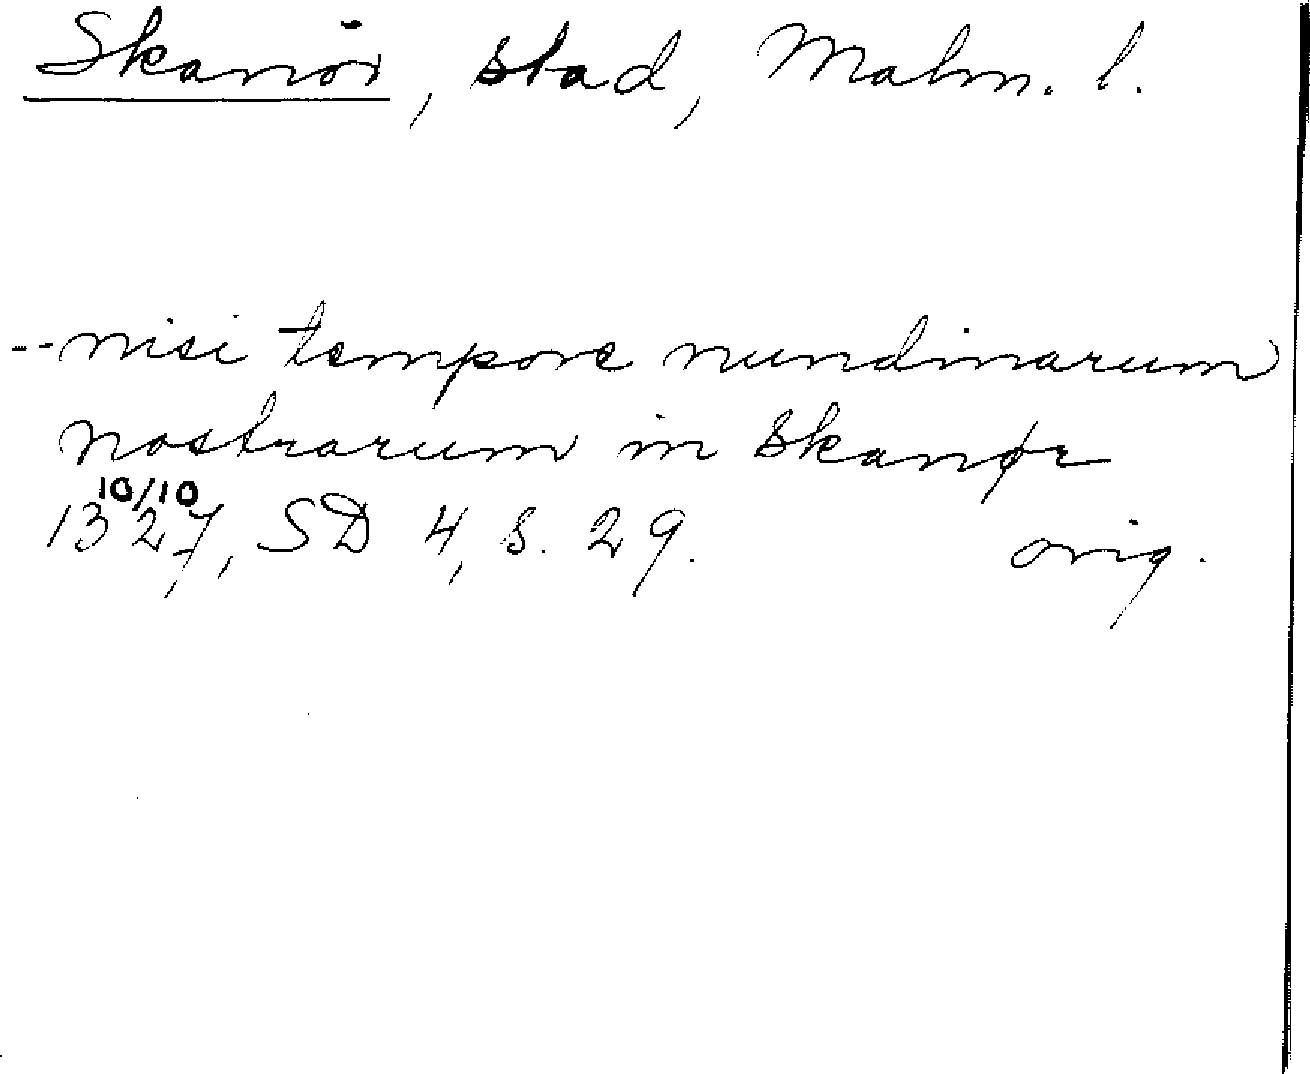 Skanör, stad, Malm. l.
-- nisi tempore nundinarum
nostrarum in Skanør
10/10
1327, SD 4, s. 29. orig.